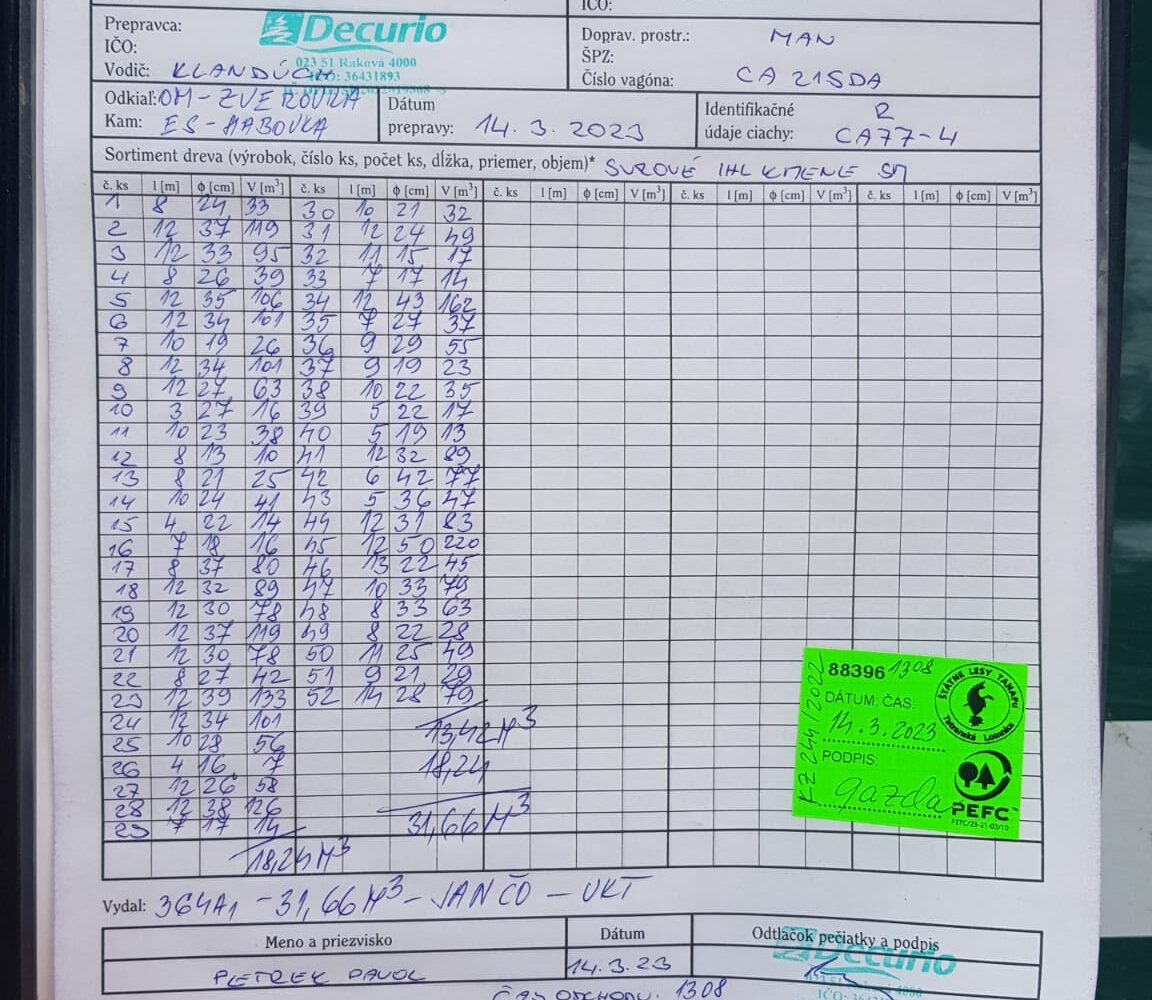 IČO:
Prepravca:
IČO:
Vodič: KLANDÚCH
Decurio
023 51 Raková 4000
IČO: 36431893
Doprav. prostr.: MAN
ŠPZ:
Číslo vagóna: CA 215DA
Odkiaľ: OM-ZVEROVKA
Kam: ES-HABOVKA
Dátum
prepravy: 14.3.2023
Identifikačné R
údaje ciachy: CA77-4
Sortiment dreva (výrobok, číslo ks, počet ks, dĺžka, priemer, objem)* SUROVÉ IHL KMENE SM
č. ks l [m] ϕ [cm] V [m³] č. ks l [m] ϕ [cm] V [m³] č. ks l [m] ϕ [cm] V [m³] č. ks l [m] ϕ [cm] V [m³] č. ks l [m] ϕ [cm] V [m³]
1 8 24 33 30 10 21 32
2 12 37 119 31 12 24 49
3 12 33 95 32 11 15 17
4 8 26 39 33 7 17 14
5 12 35 106 34 12 43 162
6 12 34 101 35 7 27 37
7 10 19 26 36 9 29 55
8 12 34 101 37 9 19 23
9 12 27 63 38 10 22 35
10 3 27 16 39 5 22 17
11 10 23 38 40 5 19 13
12 8 13 10 41 12 32 89
13 8 21 25 42 6 42 77
14 10 24 41 43 5 36 47
15 4 22 14 44 12 31 83
16 7 18 16 45 12 50 220
17 8 37 80 46 13 22 45
18 12 32 89 47 10 33 79
19 12 30 78 48 8 33 63
20 12 37 119 49 8 22 28
21 12 30 78 50 11 25 49
22 8 27 42 51 9 21 29
23 12 39 133 52 14 28 79
24 12 34 101
25 10 28 56
26 4 16 7
27 12 26 58
28 12 38 126
29 7 17 14
18,24 M³
13,42 M³
18,24
31,66 M³
88396 1308
DÁTUM, ČAS:
14.3.2023
PODPIS:
gazda
KZ 244/2022
ŠTÁTNE LESY TANAPU
Tatranská Lomnica
PEFC
PEFC/23-21-03/10
Vydal: 364A1 - 31,66 M³ - JANČO - UKT
Meno a priezvisko Dátum Odtlačok pečiatky a podpis
PETREK PAVOL 14.3.23
Decurio
023 51
IČO: 36431
ČAS ODCHODU: 1308